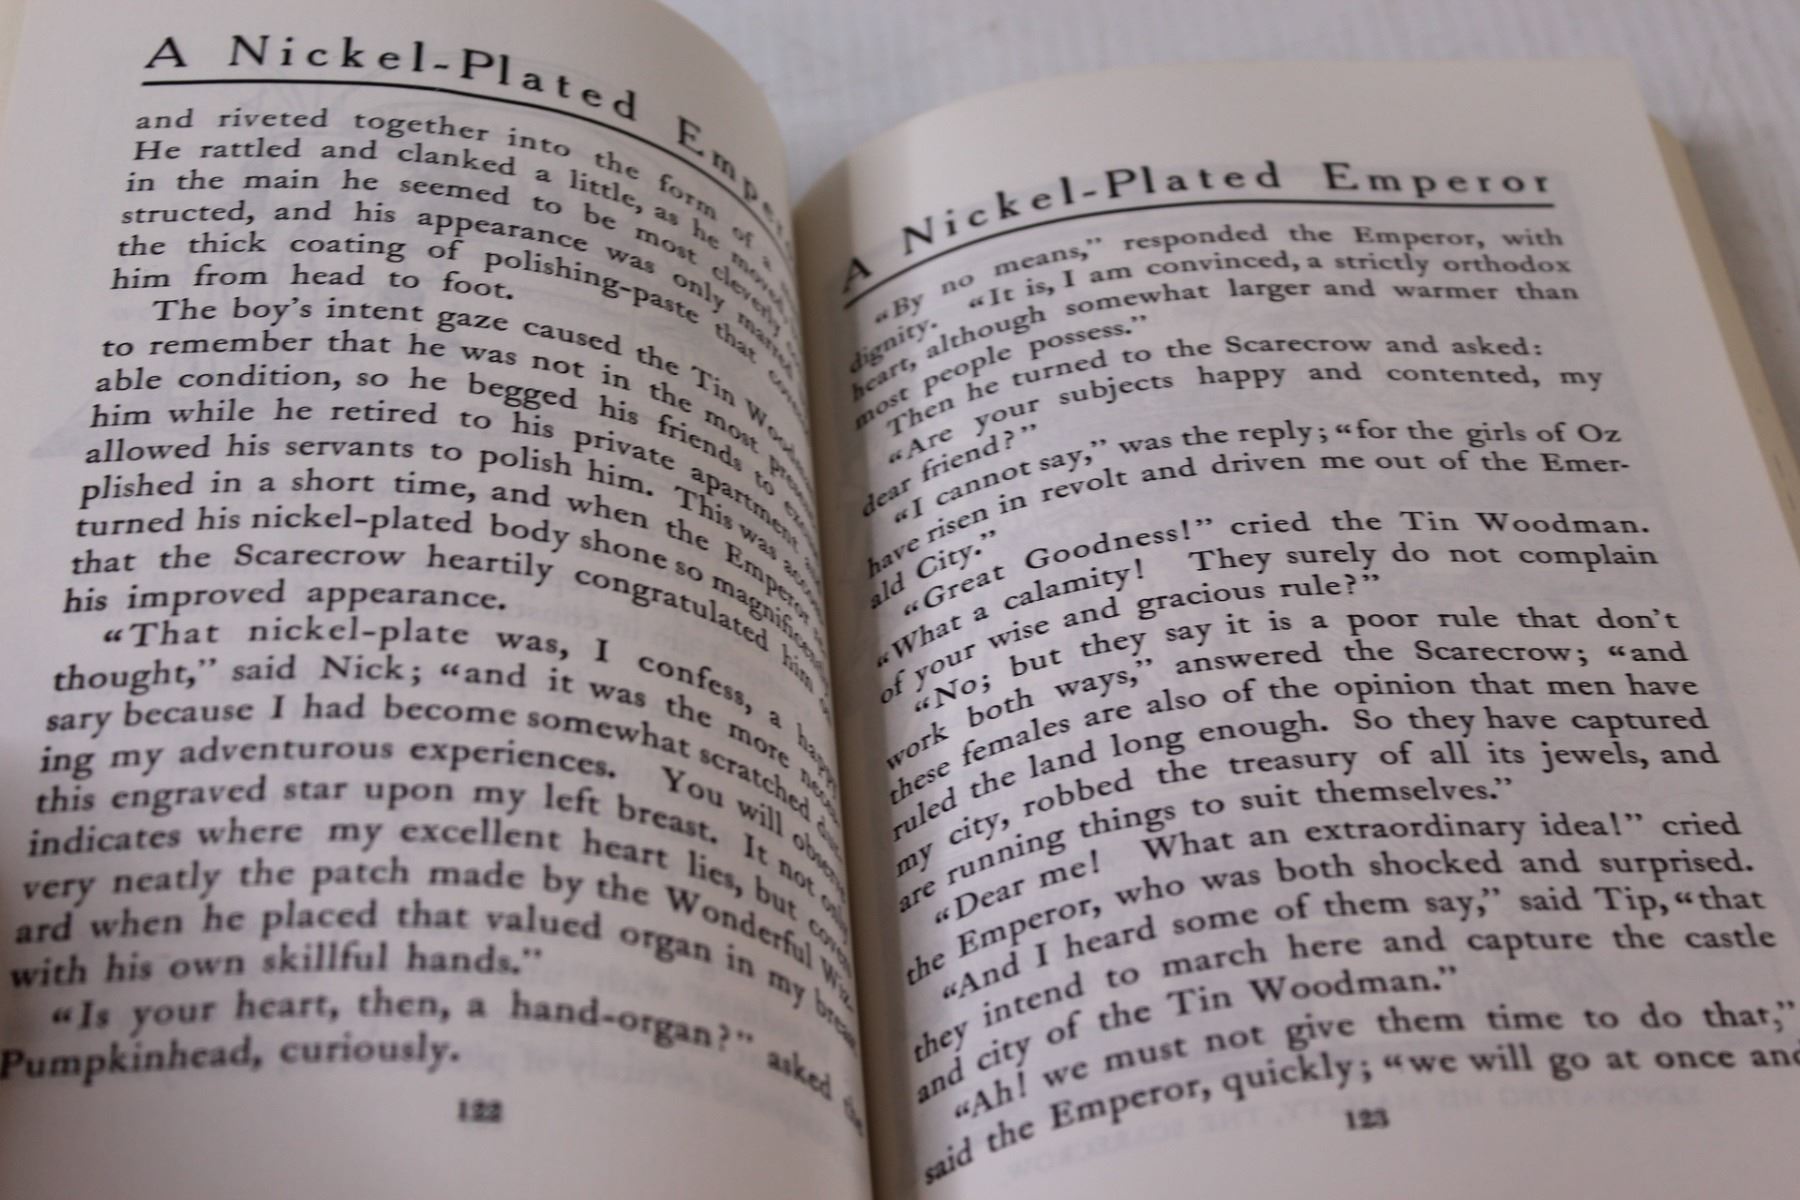 A Nickel-Plated Emper
and riveted together into the form of a
He rattled and clanked a little, as he moved,
in the main he seemed to be most cleverly
structed, and his appearance was only marred
the thick coating of polishing-paste that
him from head to foot.
The boy's intent gaze caused the Tin
to remember that he was not in the most
able condition, so he begged his friends to
him while he retired to his private apartment
allowed his servants to polish him. This was
plished in a short time, and when the Emperor
turned his nickel-plated body shone so
that the Scarecrow heartily congratulated him
his improved appearance.
“That nickel-plate was, I confess, a happy
thought,” said Nick; “and it was the more neces-
sary because I had become somewhat scratched
ing my adventurous experiences. You will observe
this engraved star upon my left breast. It not only
indicates where my excellent heart lies, but covers
very neatly the patch made by the Wonderful Wiz-
ard when he placed that valued organ in my breast
with his own skillful hands.”
“Is your heart, then, a hand-organ?” asked the
Pumpkinhead, curiously.
122
A Nickel-Plated Emperor
“By no means,” responded the Emperor, with
dignity. “It is, I am convinced, a strictly orthodox
heart, although somewhat larger and warmer than
most people possess.”
Then he turned to the Scarecrow and asked:
“Are your subjects happy and contented, my
dear friend?”
“I cannot say,” was the reply; “for the girls of Oz
have risen in revolt and driven me out of the Emer-
ald City.”
“Great Goodness!” cried the Tin Woodman.
“What a calamity! They surely do not complain
of your wise and gracious rule?”
“No; but they say it is a poor rule that don't
work both ways,” answered the Scarecrow; “and
these females are also of the opinion that men have
ruled the land long enough. So they have captured
my city, robbed the treasury of all its jewels, and
are running things to suit themselves.”
“Dear me! What an extraordinary idea!” cried
the Emperor, who was both shocked and surprised.
“And I heard some of them say,” said Tip, “that
they intend to march here and capture the castle
and city of the Tin Woodman.”
“Ah! we must not give them time to do that,”
said the Emperor, quickly; “we will go at once and
123